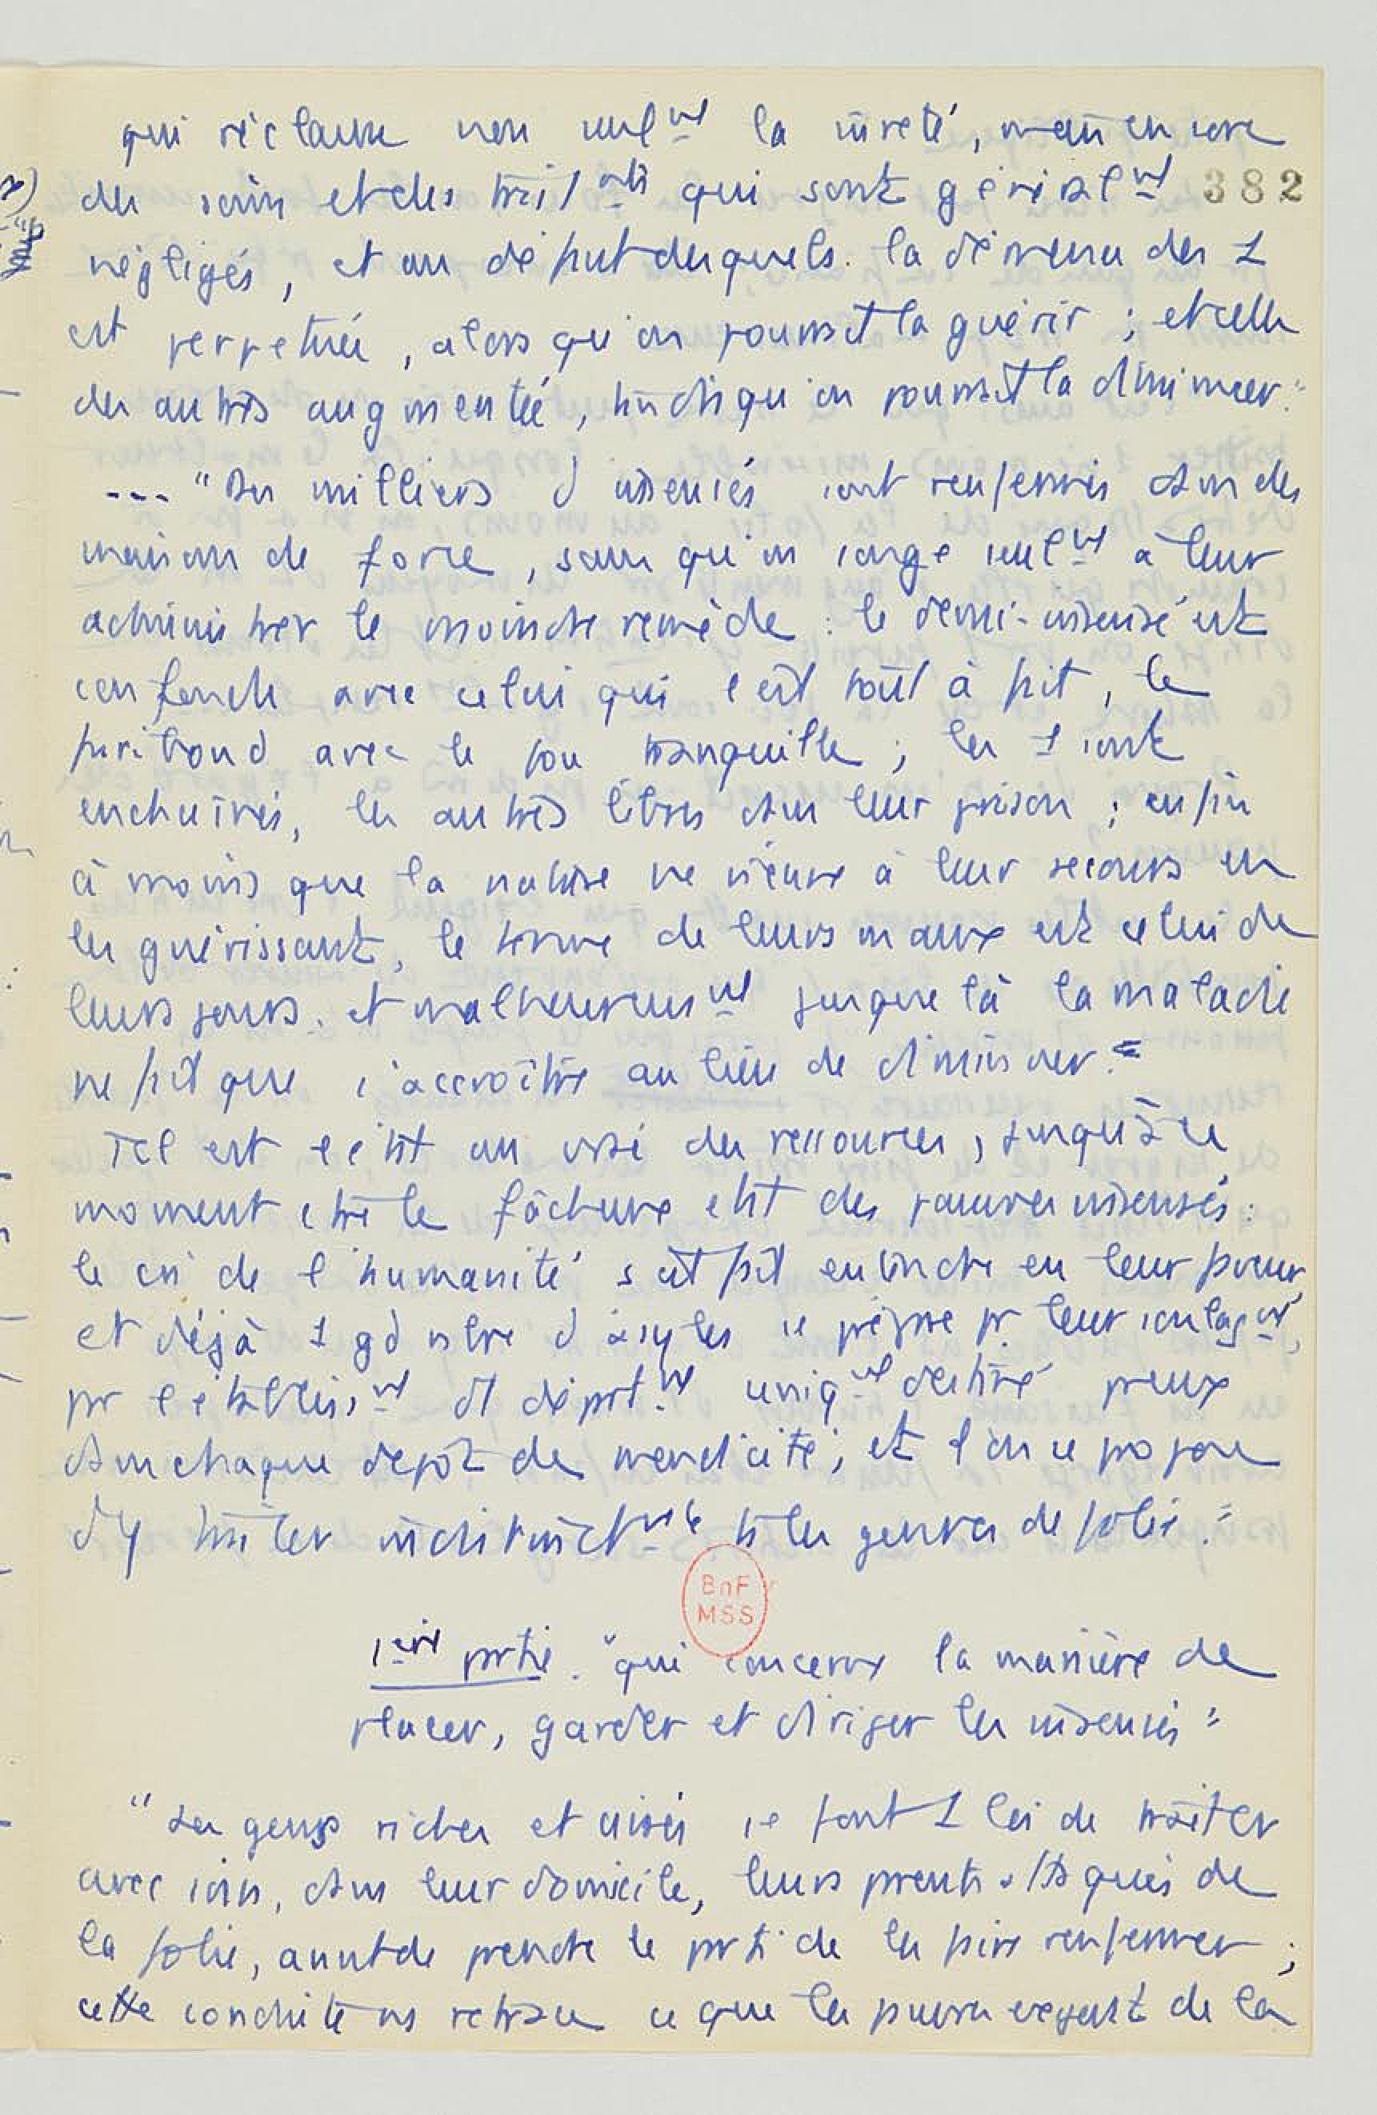 qui réclame non seulnt la sûreté, mais encore
des soins et des traitnts qui sont généralnt 382
négligés, et au défaut desquels la démence des 1
est perpétuée, alors qu'on pourrait la guérir ; et celle
des autres augmentée, tandis qu'on pourrait la diminuer."
--- "Des milliers d'insensés sont renfermés dans des
maisons de force, sans qu'on songe seulnt à leur
administrer le moindre remède : le demi-insensé est
confondu avec celui qui l'est tout à fait, le
furibond avec le fou tranquille ; les 1 sont
enchaînés, les autres libres dans leur prison ; enfin
à moins que la nature ne vienne à leur secours en
les guérissant, le terme de leurs maux est celui de
leurs jours, et malheureusnt jusque là la maladie
ne fait que s'accroître au lieu de diminuer."
Tel est l'état au vrai des ressources, jusqu'à ce
moment contre le fâcheux état des pauvres insensés :
le cri de l'humanité s'est fait entendre en leur faveur,
et déjà 1 gd nbre d'asyles se prépare pr leur soulagnt,
pr l'établissnt d'1 départnt uniqnt destiné pr eux
dans chaque dépôt de mendicité ; et l'on se propose
d'y traiter indistinctnt ts les genres de folie."
BnF
MSS
1ère partie. "qui concerne la manière de
placer, garder et diriger les insensés"
"Les gens riches et aisés se font 1 loi de traiter
avec soin, dans leur domicile, leurs parents attaqués de
la folie, avant de prendre le parti de les faire renfermer ;
cette conduite ns retrace ce que les pauvres exigent de la